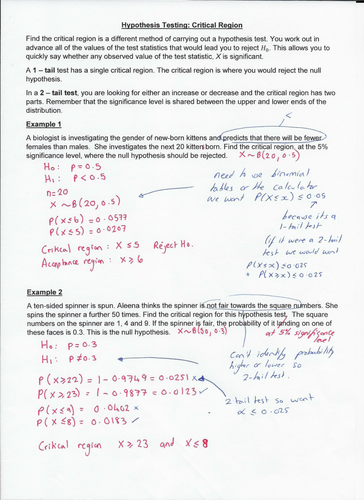 Hypothesis Testing: Critical Region
Find the critical region is a different method of carrying out a hypothesis test. You work out in
advance all of the values of the test statistics that would lead you to reject H₀. This allows you to
quickly say whether any observed value of the test statistic, X is significant.
A 1 – tail test has a single critical region. The critical region is where you would reject the null
hypothesis.
In a 2 – tail test, you are looking for either an increase or decrease and the critical region has two
parts. Remember that the significance level is shared between the upper and lower ends of the
distribution.
<
Example 1
A biologist is investigating the gender of new-born kittens and predicts that there will be fewer
females than males. She investigates the next 20 kitters born. Find the critical region, at the 5%
significance level, where the null hypothesis should be rejected. X~B(20, 0.5)
H₀: p = 0.5
H₁: p < 0.5
n=20
X ~ B(20, 0.5)
P(X≤6) = 0.0577
P(X≤5) = 0.0207
Critical region: X ≤ 5 Reject H₀.
Acceptance region: X ≥ 6
need to use binomial
tables or the calculator
We want P(X≤x) ≤ 0.05
because its a
1-tail test
(if it were a 2-tail
test we would want
P(X≤x) ≤ 0.025
+ P(X≥x) ≤ 0.025
Example 2
A ten-sided spinner is spun. Aleena thinks the spinner is not fair towards the square numbers. She
spins the spinner a further 50 times. Find the critical region for this hypothesis test. The square
numbers on the spinner are 1, 4 and 9. If the spinner is fair, the probability of it landing on one
of these faces is 0.3. This is the null hypothesis. X~B(50, 0.3)
at 5% significance
level
H₀: p = 0.3
H₁: p ≠ 0.3
P(X≥22) = 1 - 0.9749 = 0.0251 x
P(X≥23) = 1 - 0.9877 = 0.0123 ✓
P(X≤9) = 0.0402 x
P(X≤8) = 0.0183 ✓
Critical region X ≥ 23 and X ≤ 8
Can't identify probability
higher or lower so
2-tail test.
2 tail test so want
α ≤ 0.025